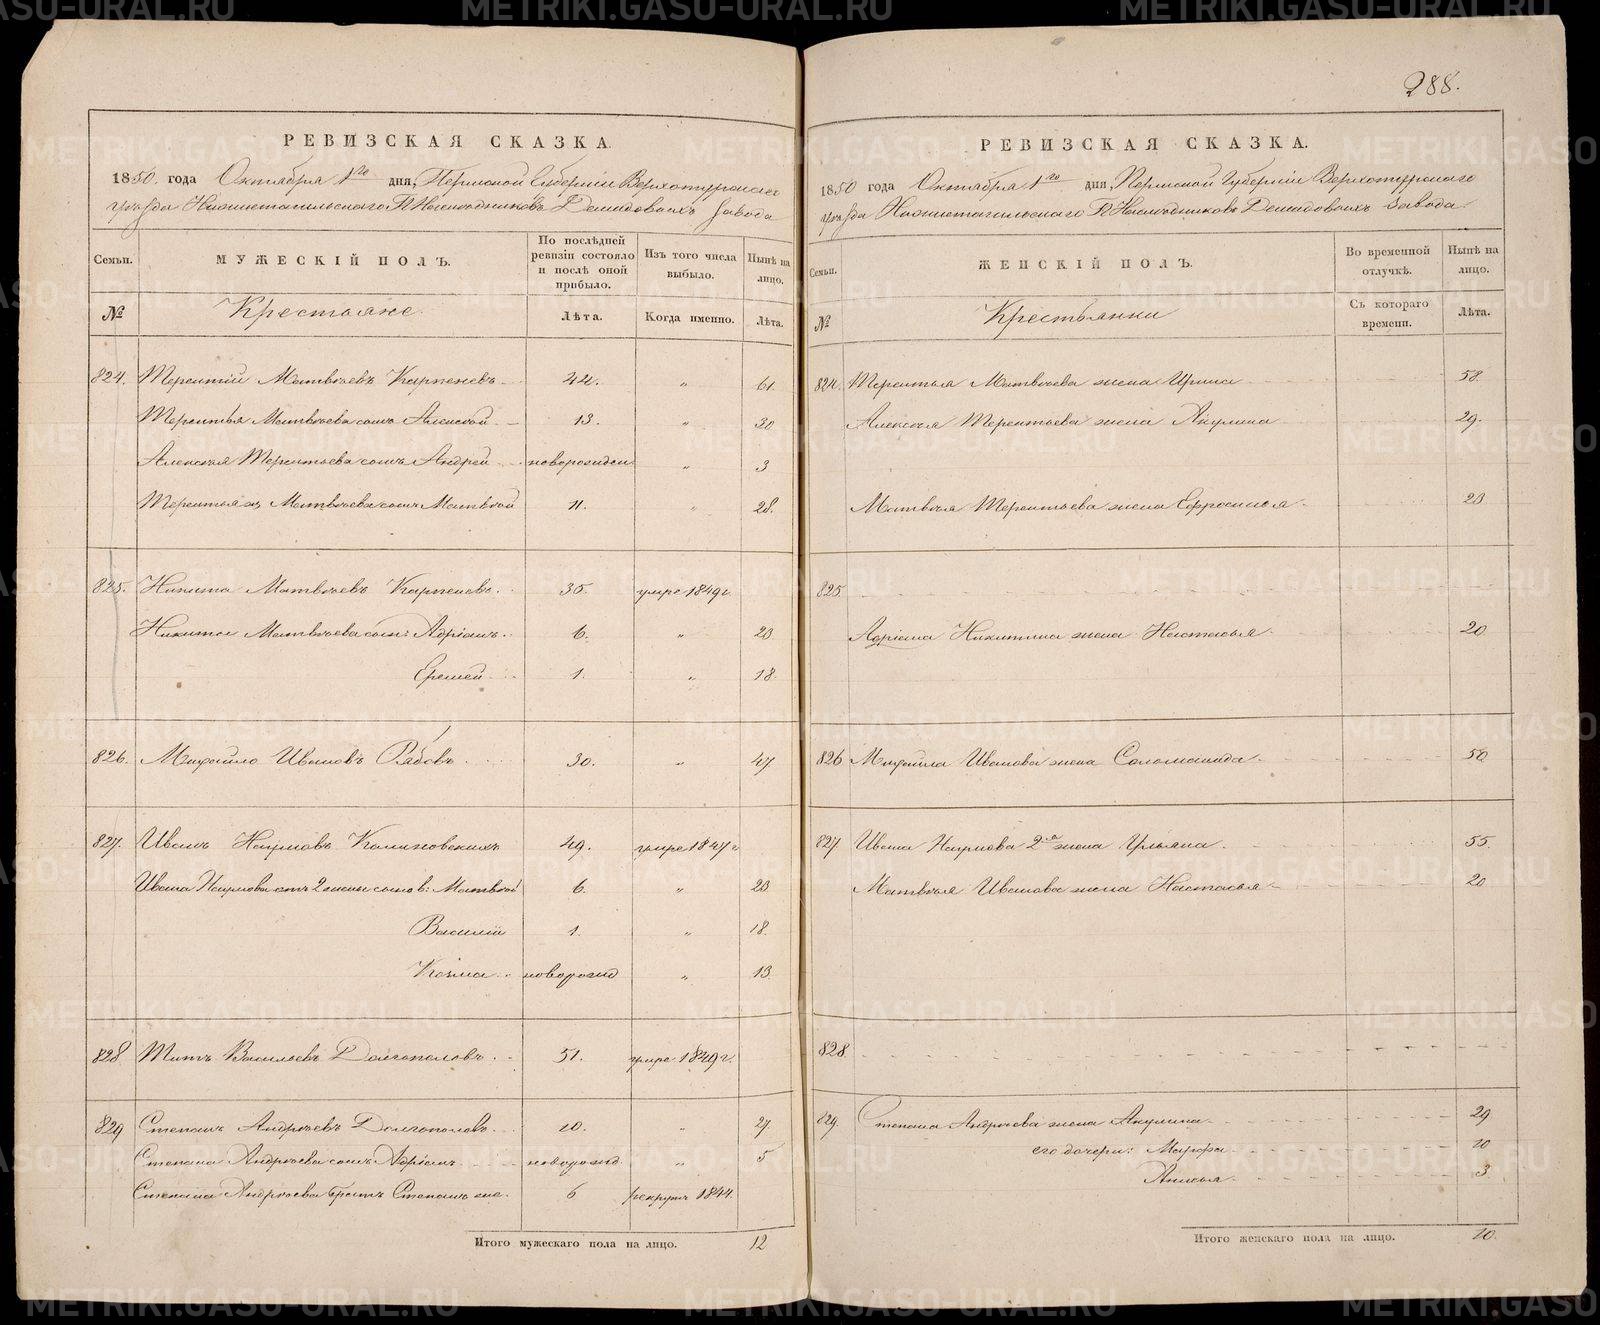 288.
РЕВИЗСКАЯ СКАЗКА.
1850. года Октября 1го дня, Пермской Губерніи Верхотурскаго
уѣзда Нижнетагильскаго Гг. Наслѣдниковъ Демидовыхъ завода
Семьи.
МУЖЕСКІЙ ПОЛЪ.
По послѣдней ревизіи состояло и послѣ оной прибыло.
Изъ того числа выбыло.
Нынѣ на лицо.
№
Крестьяне.
Лѣта.
Когда именно.
Лѣта.
824. Терентій Матвѣевъ Карпеневъ 44. " 61.
Терентья Матвѣева сынъ Алексѣй 13. " 30
Алексѣя Терентьева сынъ Андрей новорожден " 3
Терентья Матвѣева сынъ Матвѣй 11. " 28.
825. Никита Матвѣевъ Карпеневъ. 35. умре 1849 г.
Никиты Матвѣева сын: Адріанъ. 6. " 23
Еремей 1. " 18.
826. Михайло Ивановъ Рябовъ 30. " 47
827. Иванъ Наумовъ Калиновскихъ 49. умре 1847 г
Ивана Наумова отъ 2 жены сынов: Матвѣй 6. " 23
Василій 1. " 18.
Козма новорожд " 13.
828. Титъ Васильевъ Долгополовъ. 51. умре 1849 г.
829 Степанъ Андрѣевъ Долгополовъ. 10. " 27
Степана Андрѣева сынъ Адріанъ новорожд. " 5
Степана Андрѣева братъ Степанъ же. 6 рекрутъ 1844.
Итого мужескаго пола на лицо. 12
РЕВИЗСКАЯ СКАЗКА.
1850 года Октября 1го дня, Пермской Губерніи Верхотурскаго
уѣзда Нижнетагильскаго Гг. Наслѣдниковъ Демидовыхъ завода
Семьи.
ЖЕНСКІЙ ПОЛЪ.
Во временной отлучкѣ.
Нынѣ на лицо.
№
Крестьянки
Съ котораго времени.
Лѣта.
824. Терентья Матвѣева жена Ирина 58.
Алексѣя Терентьева жена Акулина 29.
Матвѣя Терентьева жена Ефросинья 23
825.
Адріана Никитина жена Настасья 20
826 Михайла Иванова жена Соломанида 50
827 Ивана Наумова 2я жена Ульяна. 55.
Матвѣя Иванова жена Настасья 20
828.
829. Степана Андрѣева жена Акулина 29
его дочери: Марфа. 10
Анисья 3.
Итого женскаго пола на лицо. 10.
METRIKI.GASO-URAL.RU